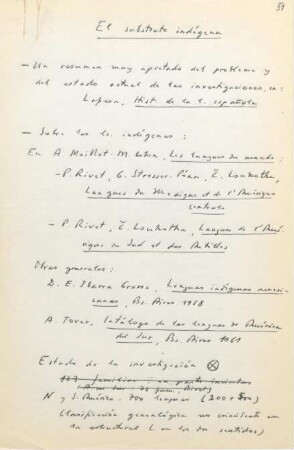 59
El substrato indígena
— Un resumen muy apretado del problema y
del estado actual de las investigaciones, en:
Lapesa, Hist. de la l. española
— Sobre las le. indígenas:
En A. Meillet - M. Cohen, Les langues du monde:
— P. Rivet, G. Stresser-Péan, Č. Loukotka,
Langues du Mexique et de l'Amérique
centrale
— P. Rivet, Č. Loukotka, Langues de l'Amé-
rique du Sud et des Antilles
Obras generales:
D. E. Ibarra Grasso, Lenguas indígenas americanas,
Bs. Aires 1958
A. Tovar, Catálogo de las lenguas de América
del Sur, Bs. Aires 1961
Estado de la investigación
123 familias en parte
N y S. América. 700 lenguas (200 +
(Clasificación genealógica no coincidente con
la estructural (en los dos sentidos)